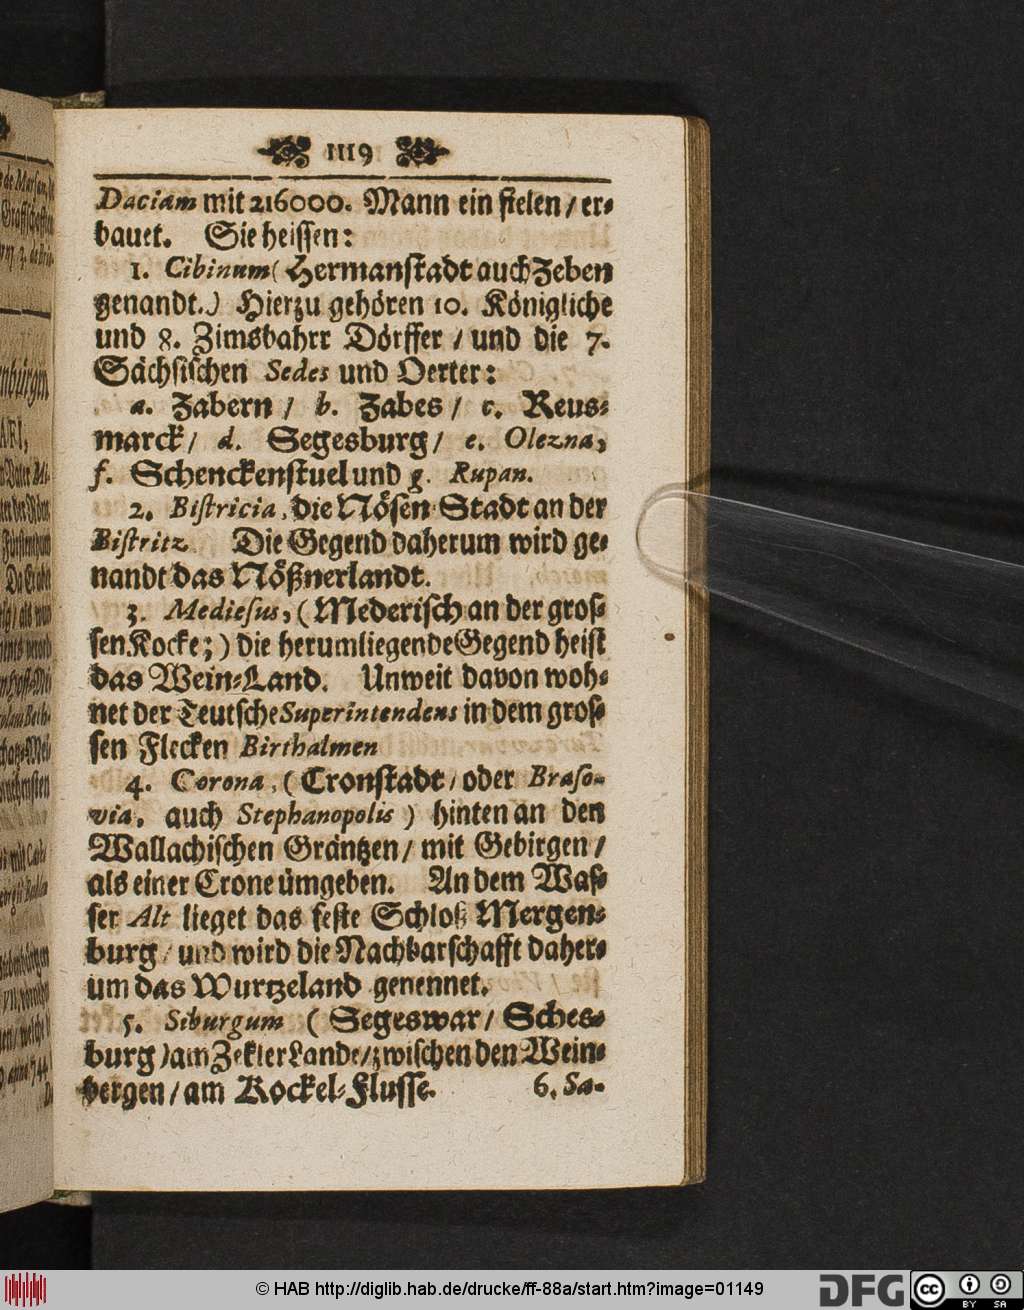 1119
Daciam mit 216000. Mann ein fielen / er⸗
bauet. Sie heissen:
1. Cibinum (Hermanstadt auch Zeben
genandt.) Hierzu gehören 10. Königliche
und 8. Zimsbahrr Dörffer / und die 7.
Sächsischen Sedes und Oerter:
a. Zabern / b. Zabes / c. Reus⸗
marck / d. Segesburg / e. Olezna,
f. Schenckenstuel und g. Rupan.
2. Bistricia, die Nösen Stadt an der
Bistritz. Die Gegend daherum wird ge⸗
nandt das Nößnerlandt.
3. Mediesus, (Mederisch an der gros⸗
sen Kocke;) die herumliegende Gegend heist
das Wein⸗Land. Unweit davon woh⸗
net der Teutsche Superintendens in dem gros⸗
sen Flecken Birthalmen
4. Corona, (Cronstadt / oder Braso-
via, auch Stephanopolis) hinten an den
Wallachischen Gräntzen / mit Gebirgen /
als einer Crone ümgeben. An dem Was⸗
ser Alt lieget das feste Schloß Mergen⸗
burg / und wird die Nachbarschafft daher⸗
um das Wurtzeland genennet.
5. Seburgum (Segeswar / Sches⸗
burg) am Zekler Lande / zwischen den Wein⸗
bergen / am Kockel⸗Flusse.
6. Sa-
© HAB http://diglib.hab.de/drucke/ff-88a/start.htm?image=01149
DFG
cc
BY SA